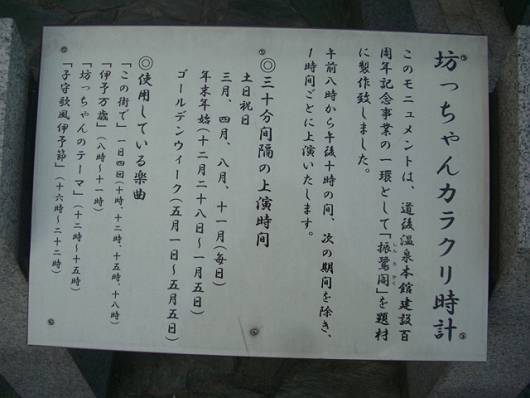 坊っちゃんカラクリ時計
このモニュメントは、道後温泉本館建設百
周年記念事業の一環として「振鷺閣」を題材
に製作致しました。
午前八時から午後十時の間、次の期間を除き、
1時間ごとに上演いたします。
◎三十分間隔の上演時間
土日祝日
三月、四月、八月、十一月(毎日)
年末年始(十二月二十八日~一月五日)
ゴールデンウィーク(五月一日~五月五日)
◎使用している楽曲
「この街で」一日四回(十時、十二時、十五時、十八時)
「伊予万歳」(八時~十一時)
「坊っちゃんのテーマ」(十二時~十五時)
「子守歌風伊予節」(十六時~二十二時)